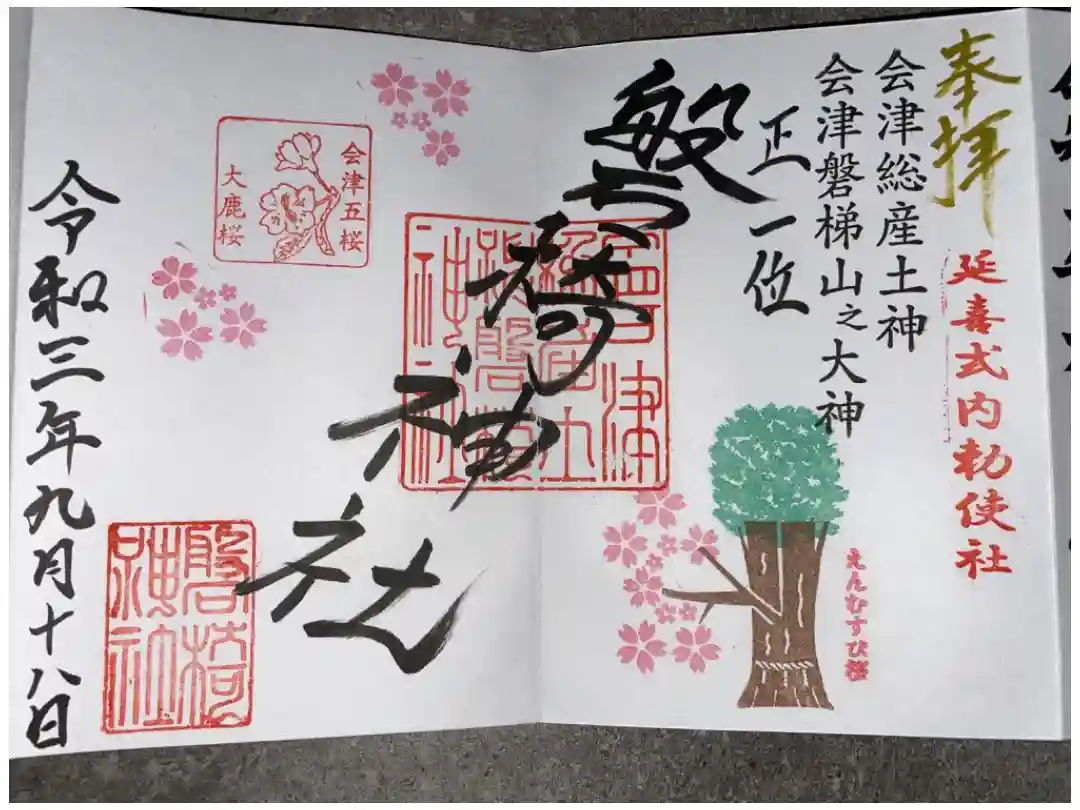 奉拝
延喜式内勅使社
会津総産土神
会津磐梯山之大神
正一位
磐椅神社
えんむすび桜
会津五桜
大鹿桜
会津
総産土
磐椅
神社
磐椅
神社
令和三年九月十八日